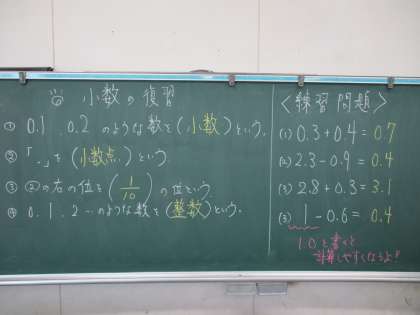 小数の復習
① 0.1、0.2のような数を(小数)という。
② 「.」を(小数点)という。
③ ②の右の位を(1/10)の位という。
④ 0、1、2…のような数を(整数)という。
〈練習問題〉
(1) 0.3+0.4=0.7
(2) 2.3-0.9=0.4
(2) 2.8+0.3=3.1
(3) 1-0.6=0.4
1.0と書くと
計算しやすくなるよ!